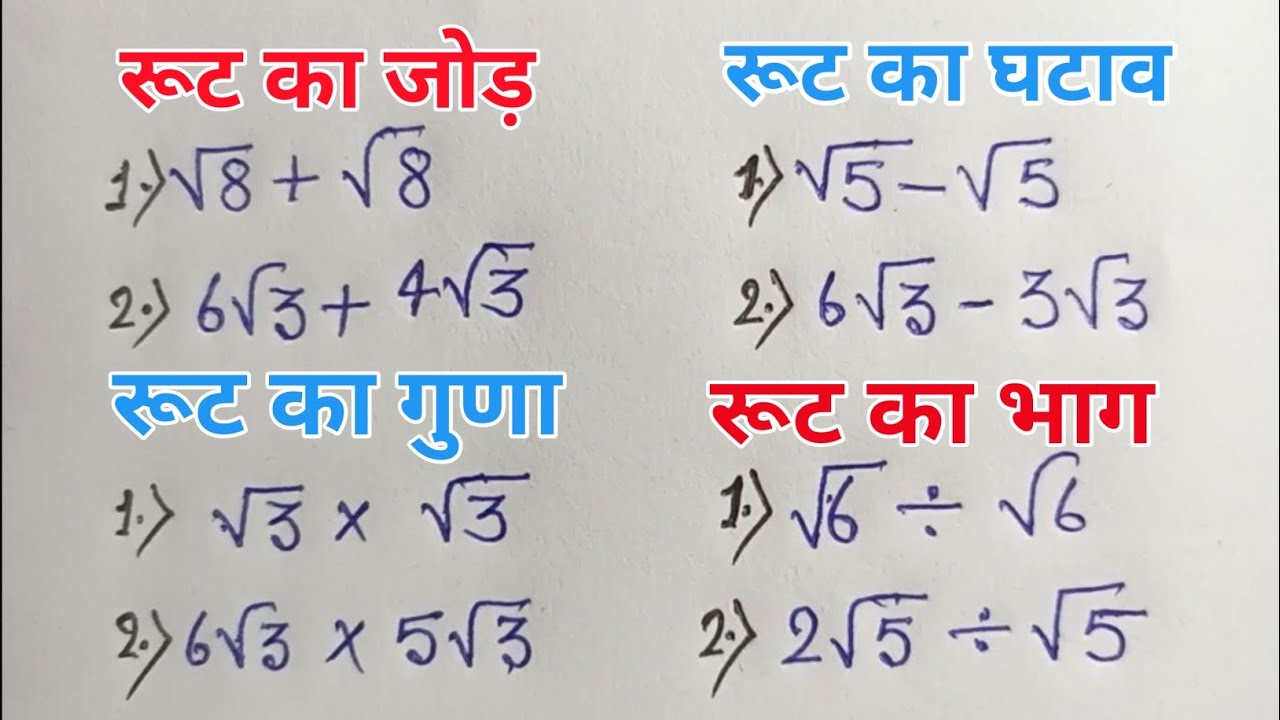 रूट का जोड़
1.) √8 + √8
2.) 6√3 + 4√3
रूट का घटाव
1.) √5 - √5
2.) 6√3 - 3√3
रूट का गुणा
1.) √3 × √3
2.) 6√3 × 5√3
रूट का भाग
1.) √6 ÷ √6
2.) 2√5 ÷ √5